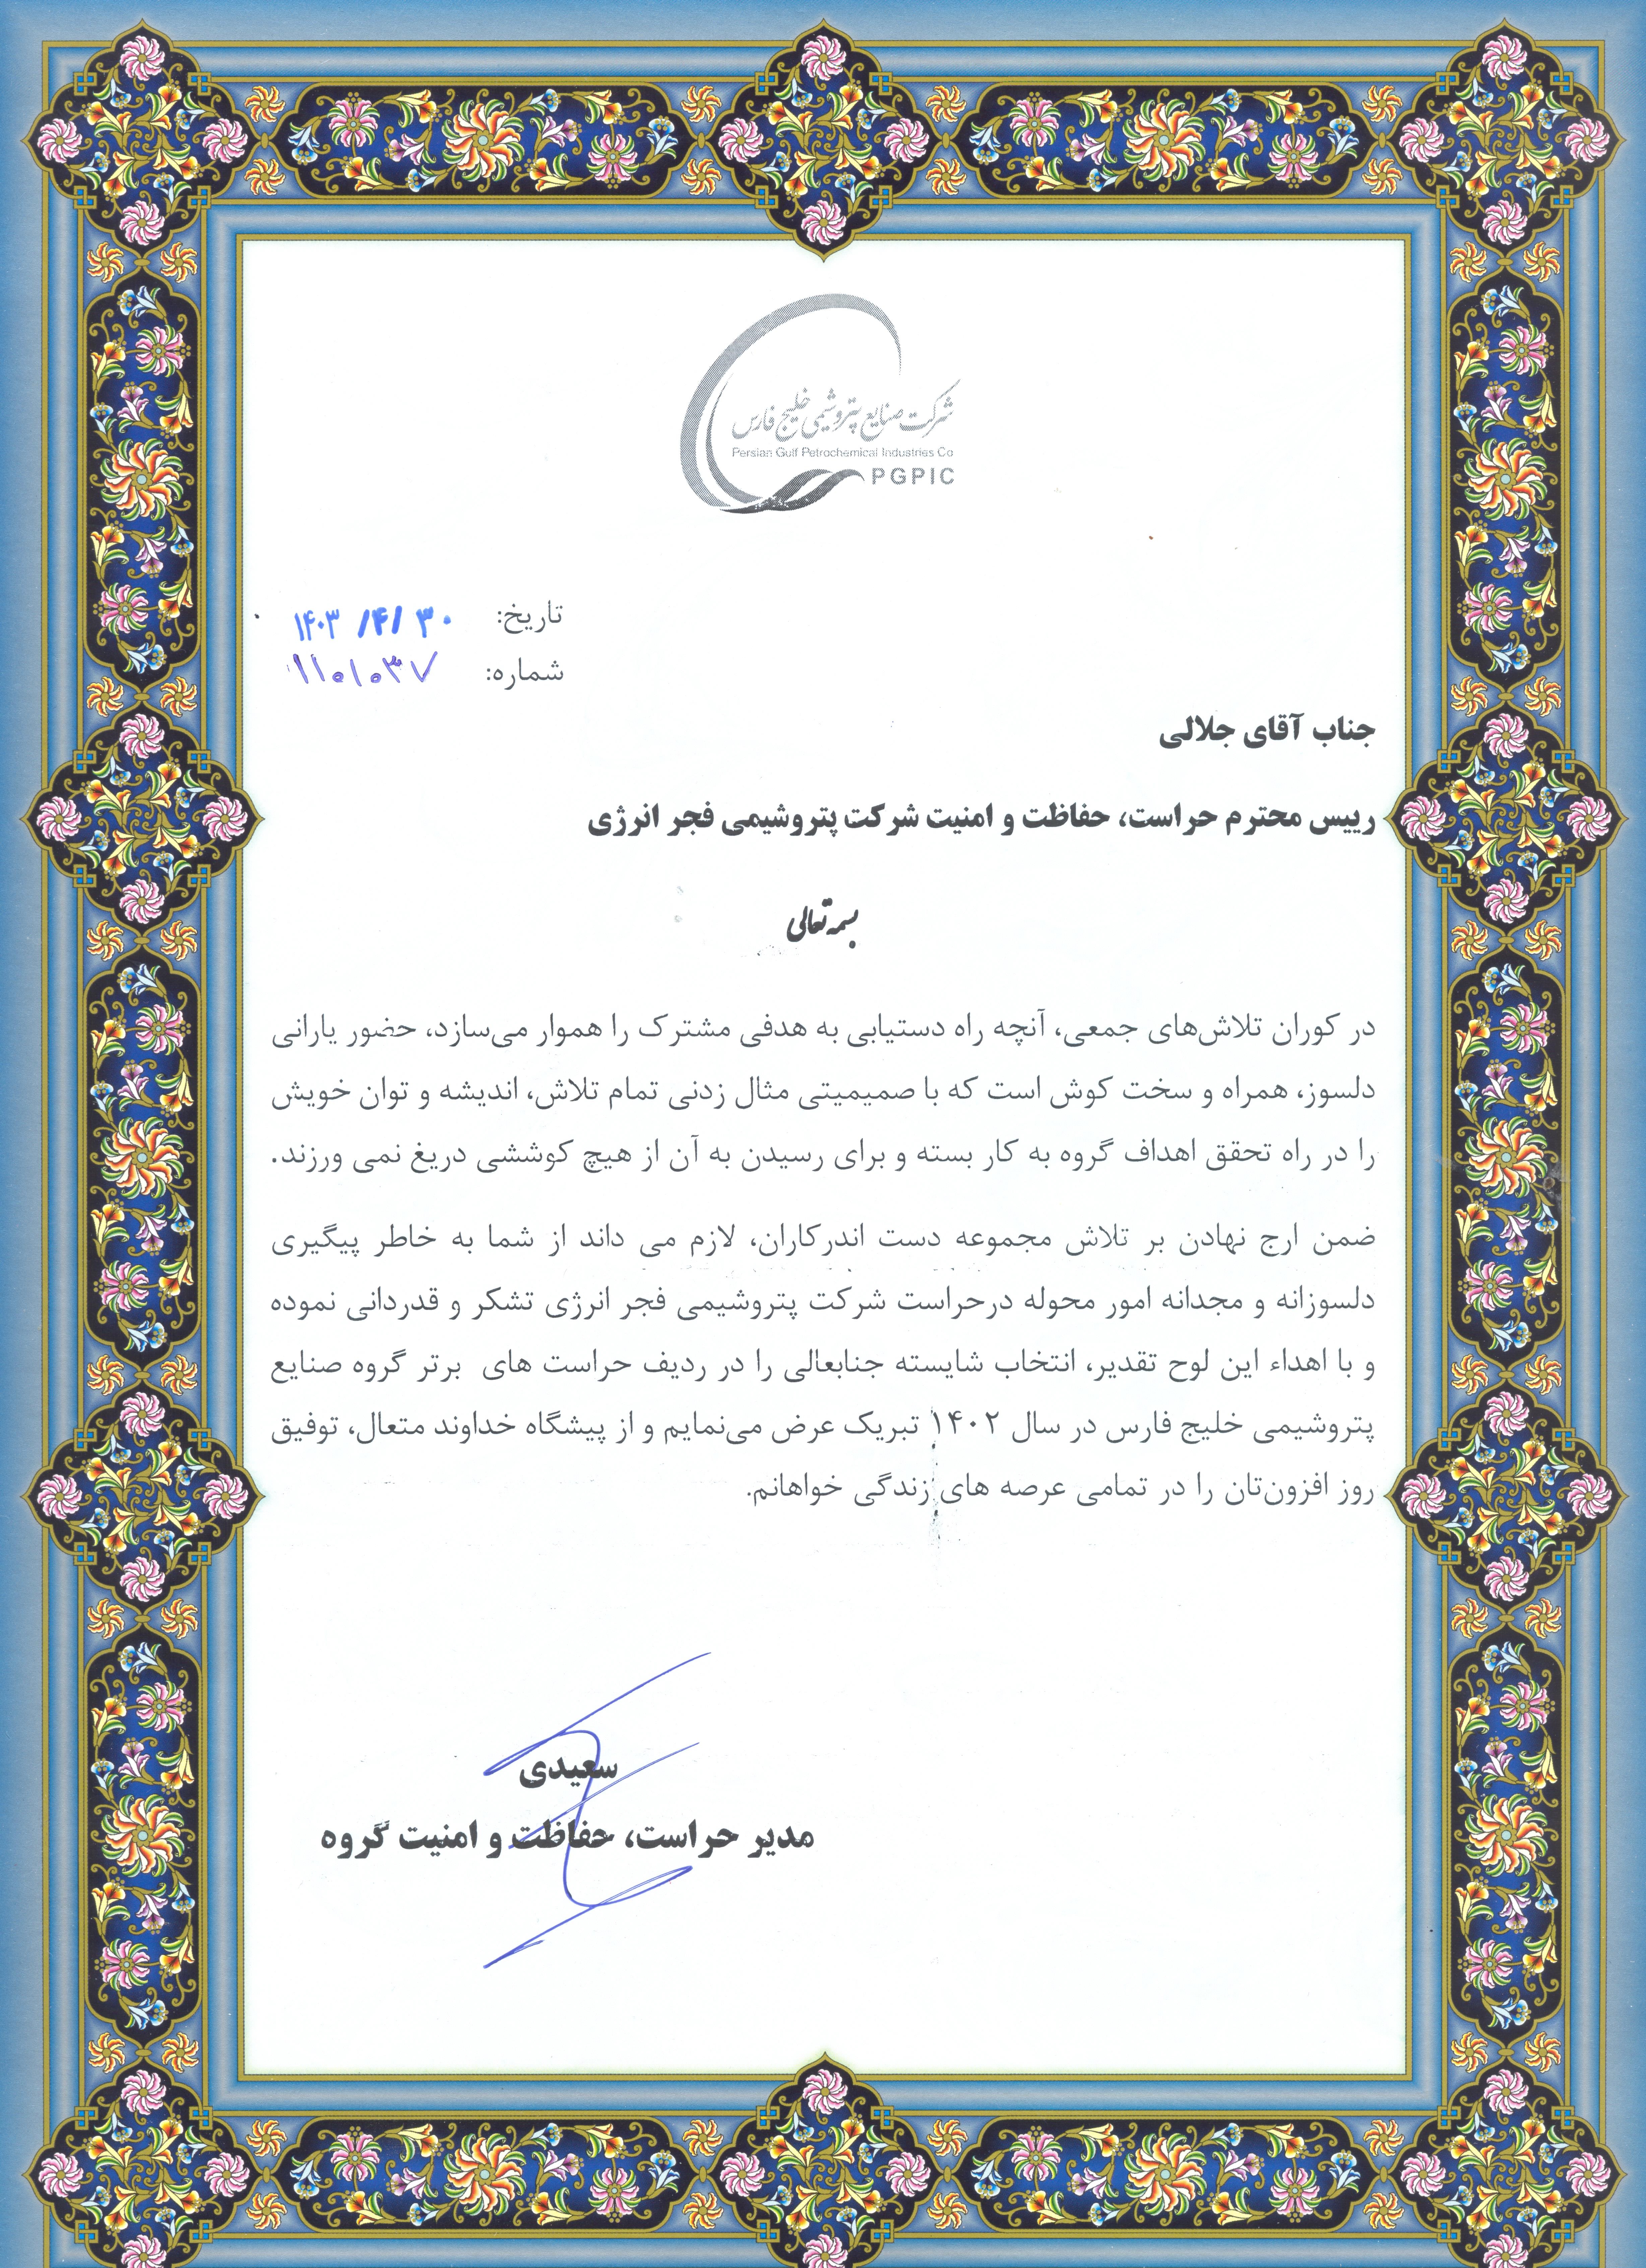 شرکت صنایع پتروشیمی خلیج فارس
Persian Gulf Petrochemical Industries Co
PGPIC
تاریخ: ۱۴۰۳/۴/۳۰
شماره: ۱۱۰۱۰۳۷
جناب آقای جلالی
رییس محترم حراست، حفاظت و امنیت شرکت پتروشیمی فجر انرژی
بسمه تعالی
در کوران تلاش‌های جمعی، آنچه راه دستیابی به هدفی مشترک را هموار می‌سازد، حضور یارانی
دلسوز، همراه و سخت کوش است که با صمیمیتی مثال زدنی تمام تلاش، اندیشه و توان خویش
را در راه تحقق اهداف گروه به کار بسته و برای رسیدن به آن از هیچ کوششی دریغ نمی ورزند.
ضمن ارج نهادن بر تلاش مجموعه دست اندرکاران، لازم می داند از شما به خاطر پیگیری
دلسوزانه و مجدانه امور محوله درحراست شرکت پتروشیمی فجر انرژی تشکر و قدردانی نموده
و با اهداء این لوح تقدیر، انتخاب شایسته جنابعالی را در ردیف حراست های برتر گروه صنایع
پتروشیمی خلیج فارس در سال ۱۴۰۲ تبریک عرض می‌نمایم و از پیشگاه خداوند متعال، توفیق
روز افزون‌تان را در تمامی عرصه های زندگی خواهانم.
سعیدی
مدیر حراست، حفاظت و امنیت گروه